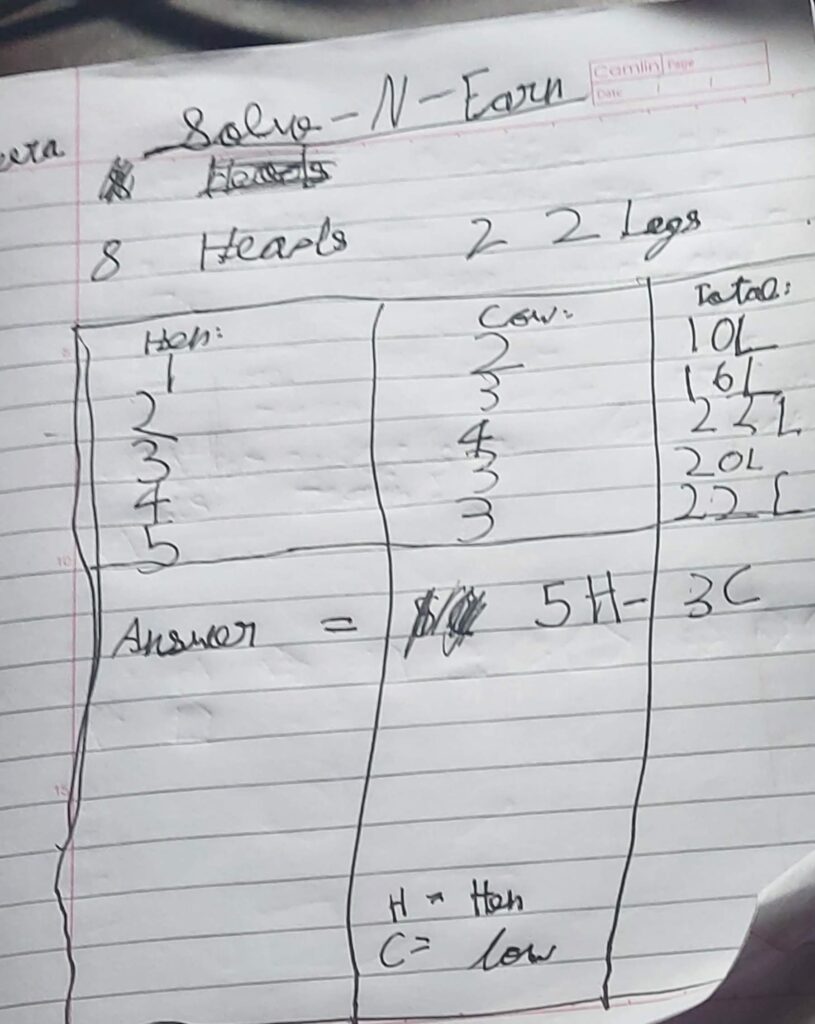 Camlin Page
Date / /
Solve-N-Earn
8 Heads 22 Legs
Hen: Cow: Total:
1 2 10L
2 3 16L
3 4 22L
4 3 20L
5 3 22L
Answer = 5H-3C
H = Hen
C = Cow
5
10
15